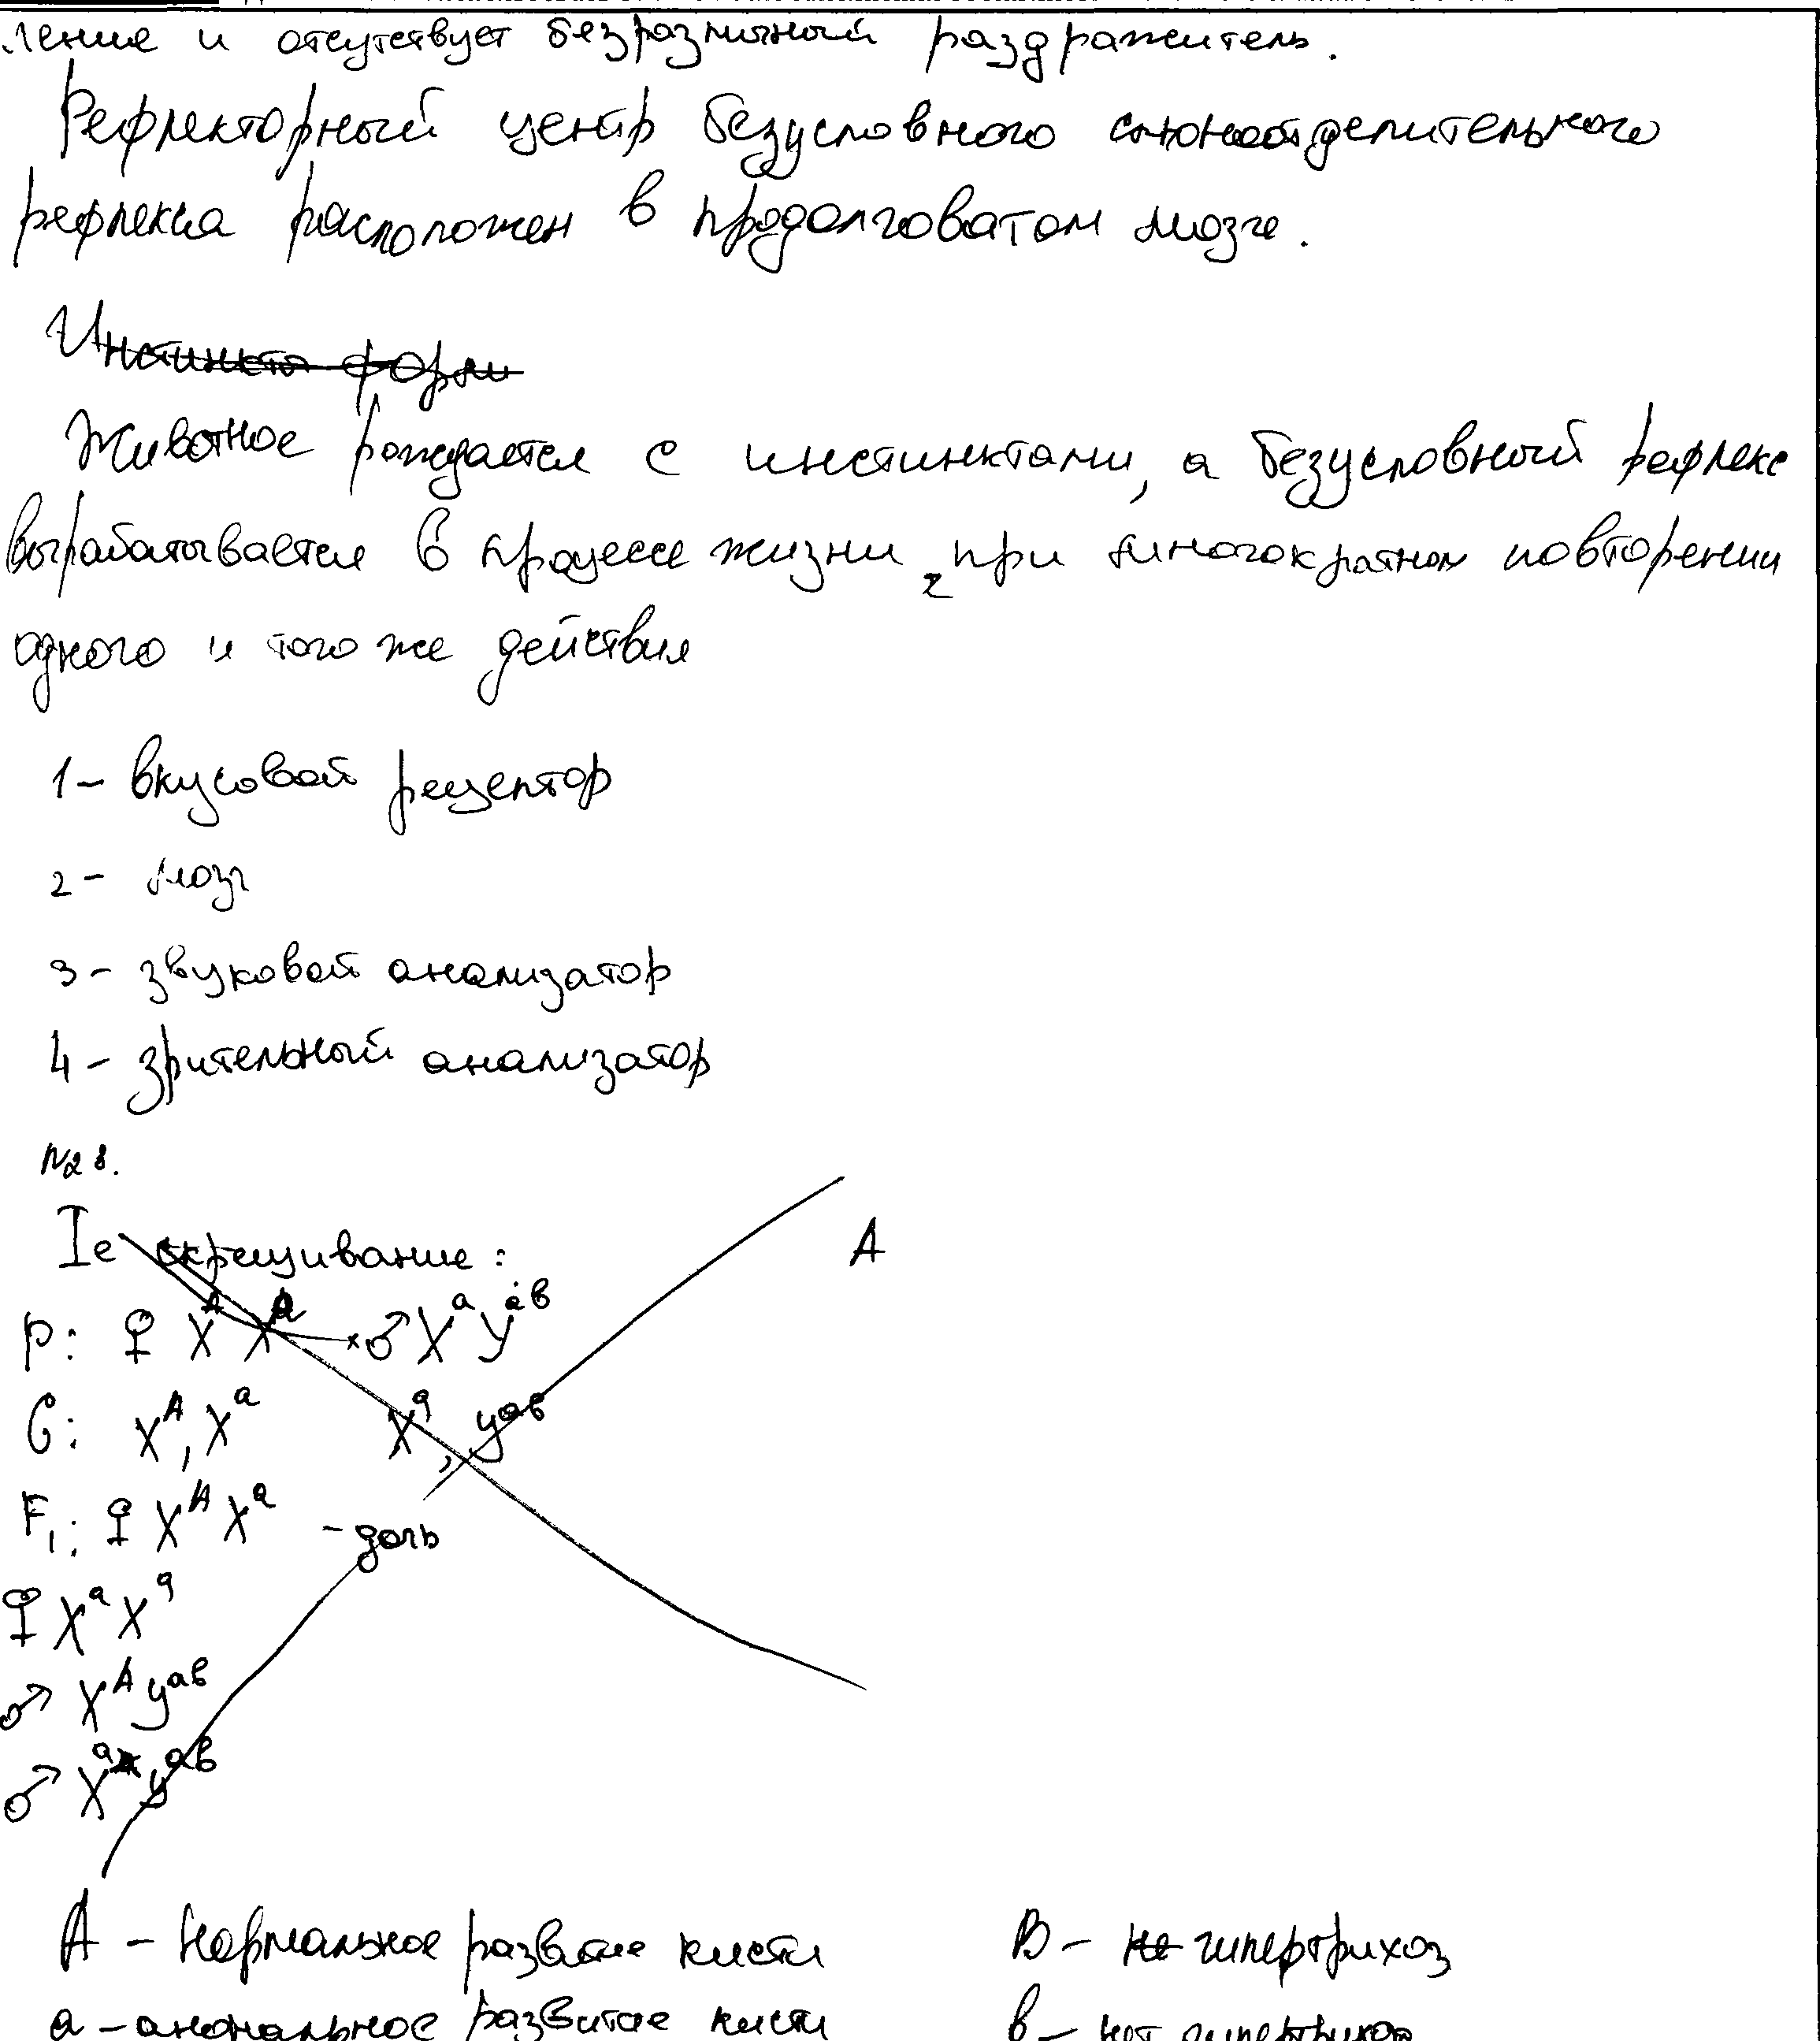 ление и отсутствует безразличный раздражитель.
Рефлекторный центр безусловного слюноотделительного
рефлекса расположен в продолговатом мозге.
Инстинкты форми
Животное рождается с инстинктами, а безусловный рефлекс
вырабатывается в процессе жизни, при многократном повторении
одного и того же действия
1 - вкусовой рецептор
2 - мозг
3 - звуковой анализатор
4 - зрительный анализатор
N28.
Iе скрещивание: A
P: ♀ X^A X^a × ♂ X^a Y^ав
G: X^A, X^a X^a, Y^ав
F₁: ♀ X^A X^a - дочь
♀ X^a X^a
♂ X^A Y^ав
♂ X^a Y^ав
А - нормальное развитие кисти В - не гипертрихоз
а - аномальное развитие кисти в - нет гипертрихоз